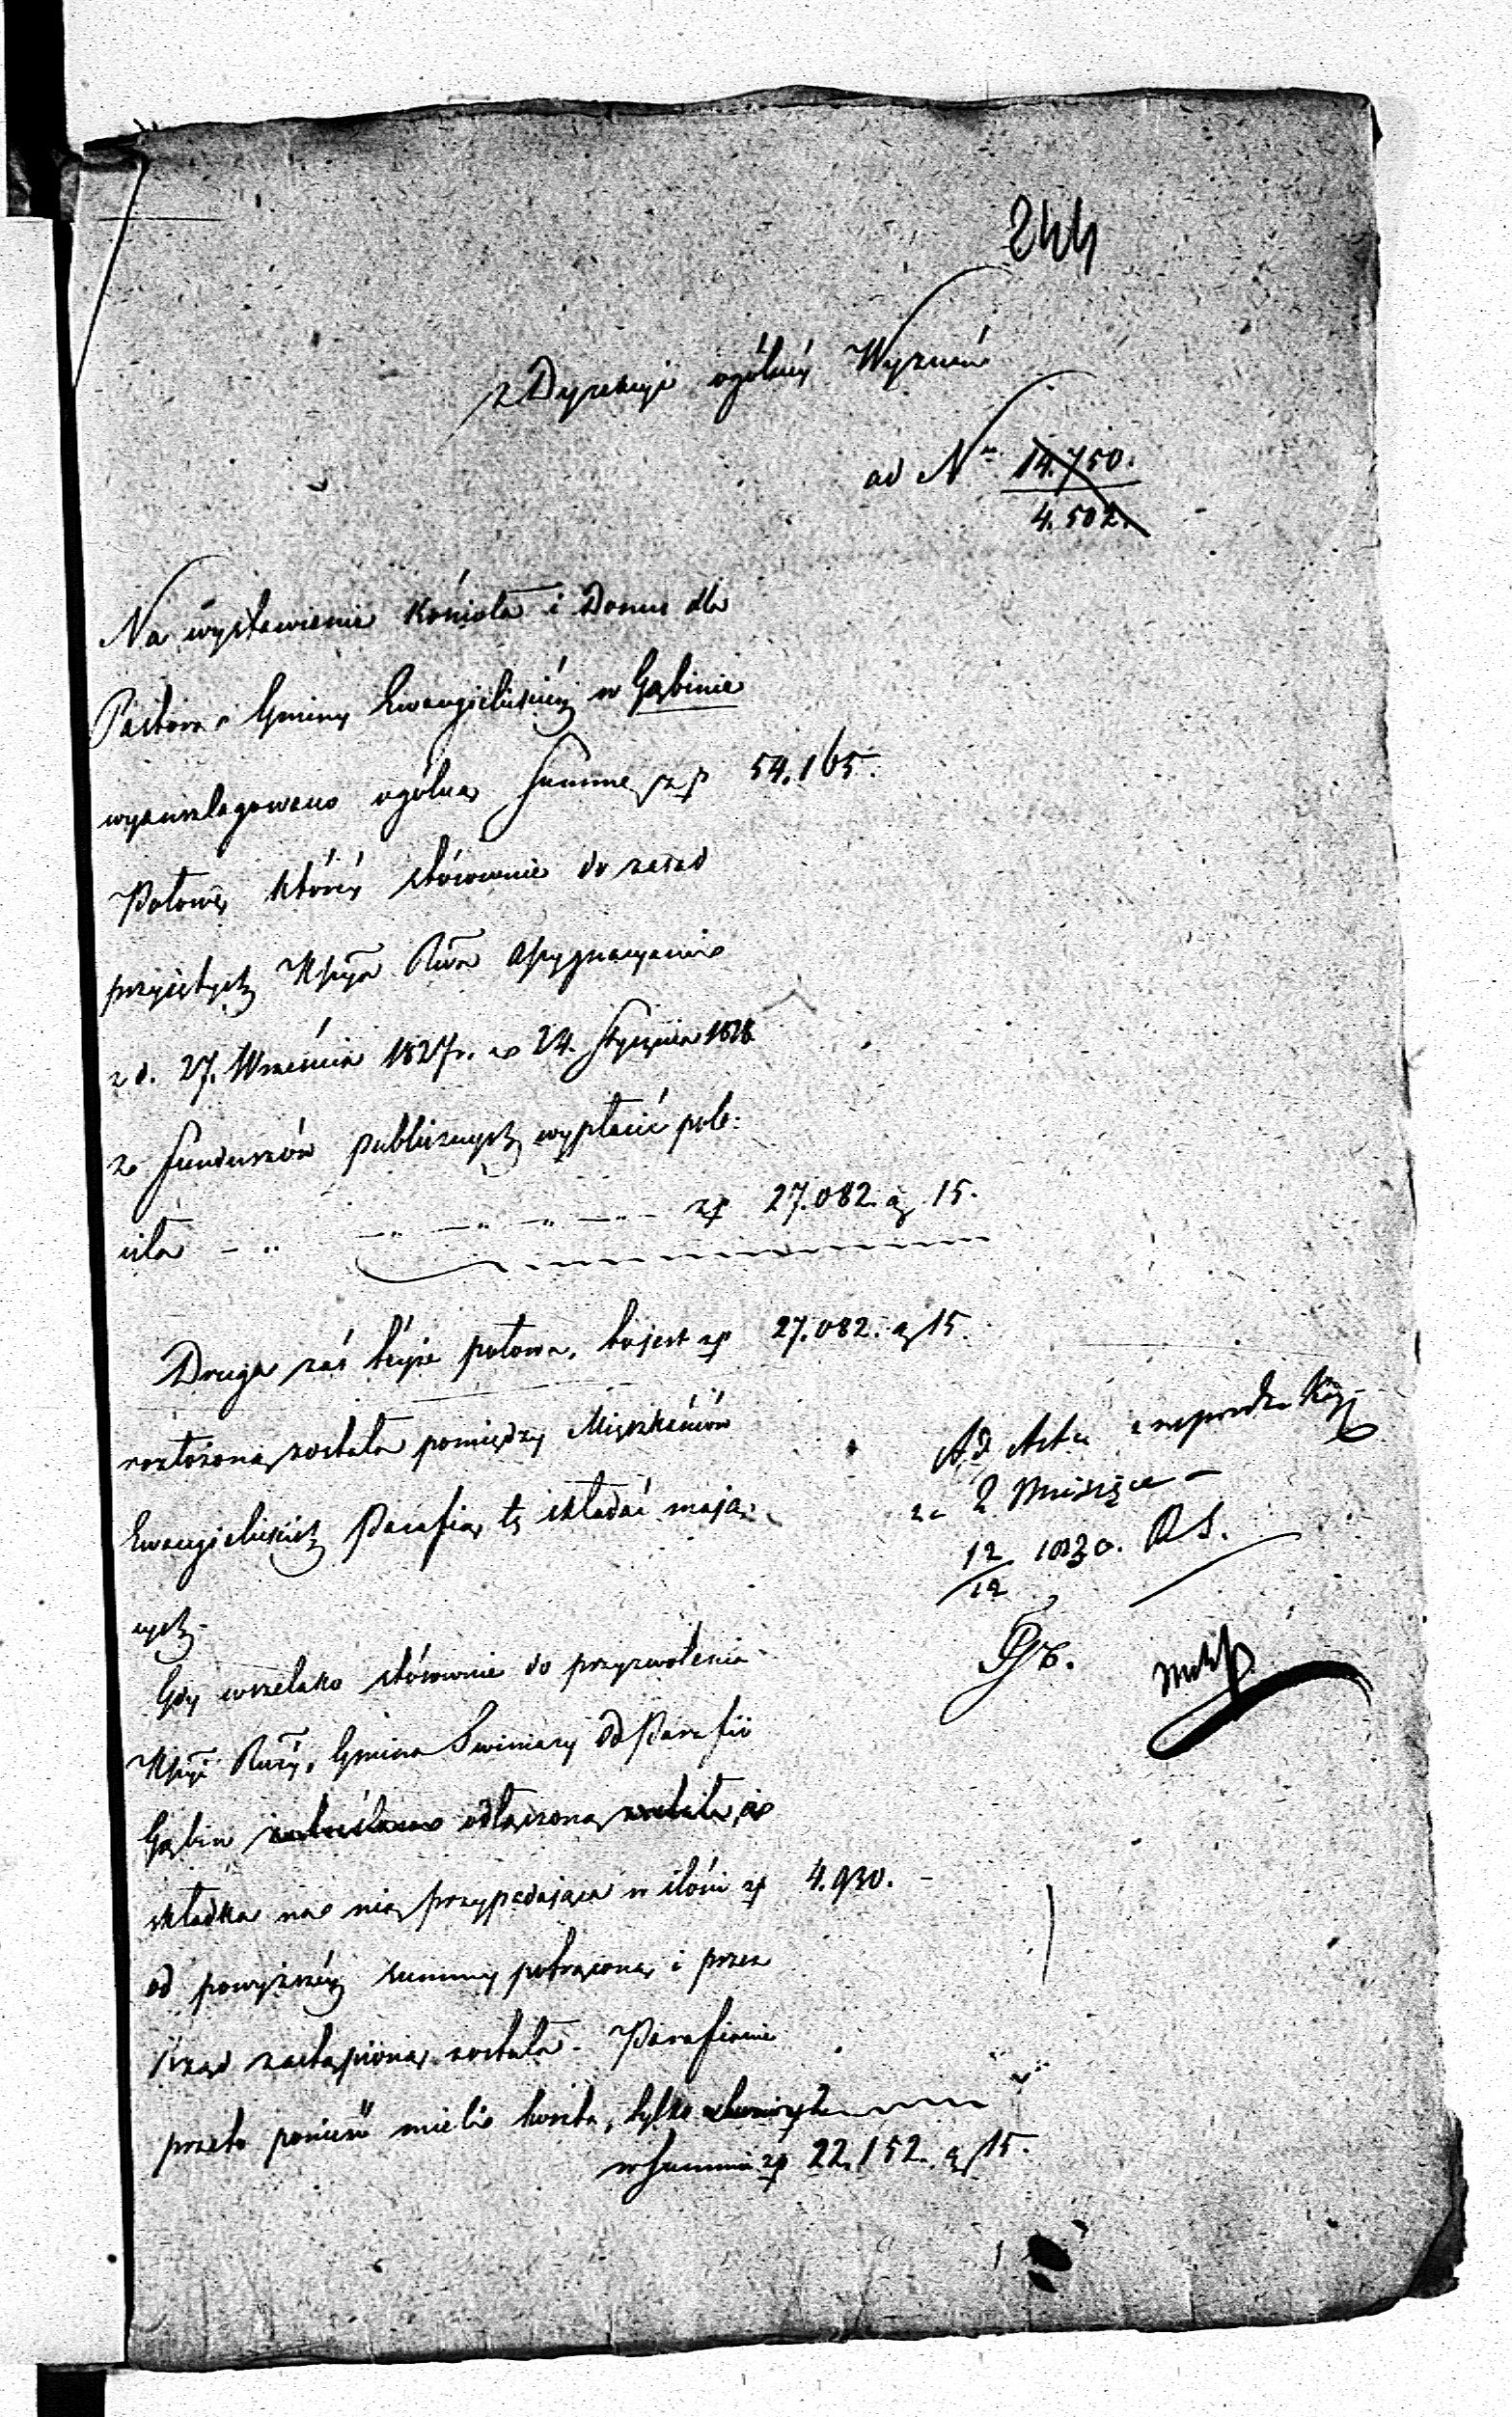 244
z Dyrekcyi ogólnéy Wyznań
ad Nr 14.750.
4.502.
Na wystawienie Kościoła i Domu dla
Pastora Gminy Ewangielickiéy w Gąbinie
wyanszlagowano ogólną Summę zł 54.165.
Połowę któréy stósownie do zasad
przyiętych Kssya Rwa assygnacyami
z d. 27. Września 1827 r. 24. Stycznia 1828
z Funduszów publicznych wypłacić pole-
ciła - " - " - " - " - zł 27.082. g 15.
Druga zaś téyże połowa, to jest zł 27.082. g 15.
rozłożoną została pomiędzy Mieszkańców
Ewangielickich Parafią tę składać mają-
cych.
Gdy wszelako stósownie do przyzwolenia
Kssyi Rwéy, Gmina Swiniary od Parafii
Gąbin odłączoną została, a
składka na nią przypadająca w ilości zł 4.930.
od powyższéy summy potrąconą i przez
Rząd zastąpioną została - Parafianie
przeto ponieść mieli koszta, tylko
w summie zł 22.152. g 15.
Ad Acta
za 2 Miesiące
12/12 1830. R S.